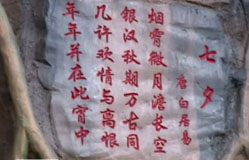 七夕
唐白居易
烟霄微月澹长空
银汉秋期万古同
几许欢情与离恨
年年并在此宵中